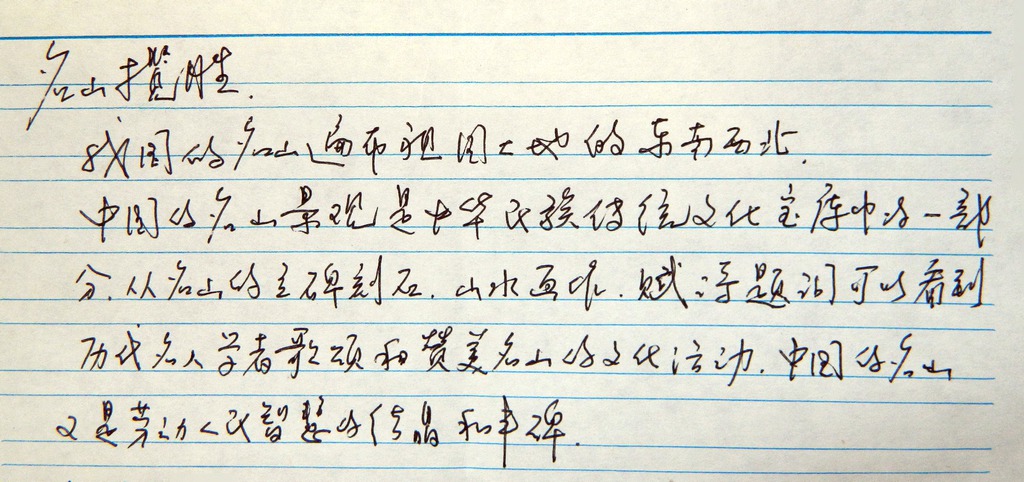 名山揽胜.
我国的名山遍布祖国大地的东南西北.
中国的名山景观是中华民族传统文化宝库中的一部
分.从名山的立碑刻石.山水画.赋诗题词可以看到
历代名人学者歌颂和赞美名山的文化活动.中国的名山
又是劳动人民智慧的结晶和丰碑.